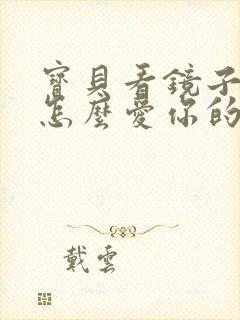 寶貝看鏡子
怎麼愛你的
戴雲